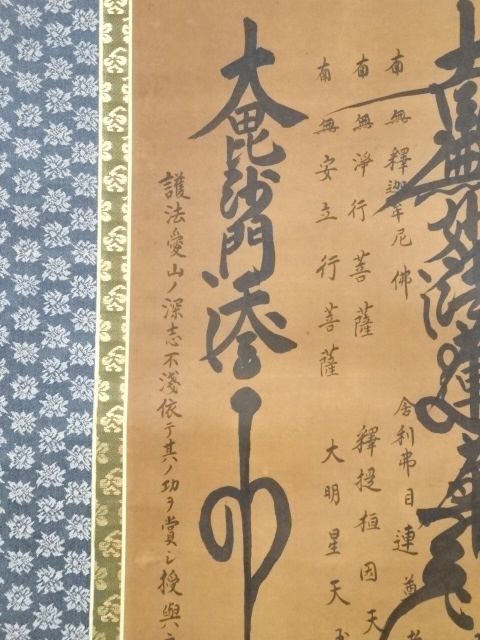 南無妙法蓮華
南無釋迦牟尼佛
舎利弗目連尊
南無淨行菩薩
釋提桓因天
南無安立行菩薩
大明星天
大毘沙門天
護法愛山ノ深志不淺依テ其ノ功ヲ賞シ授與